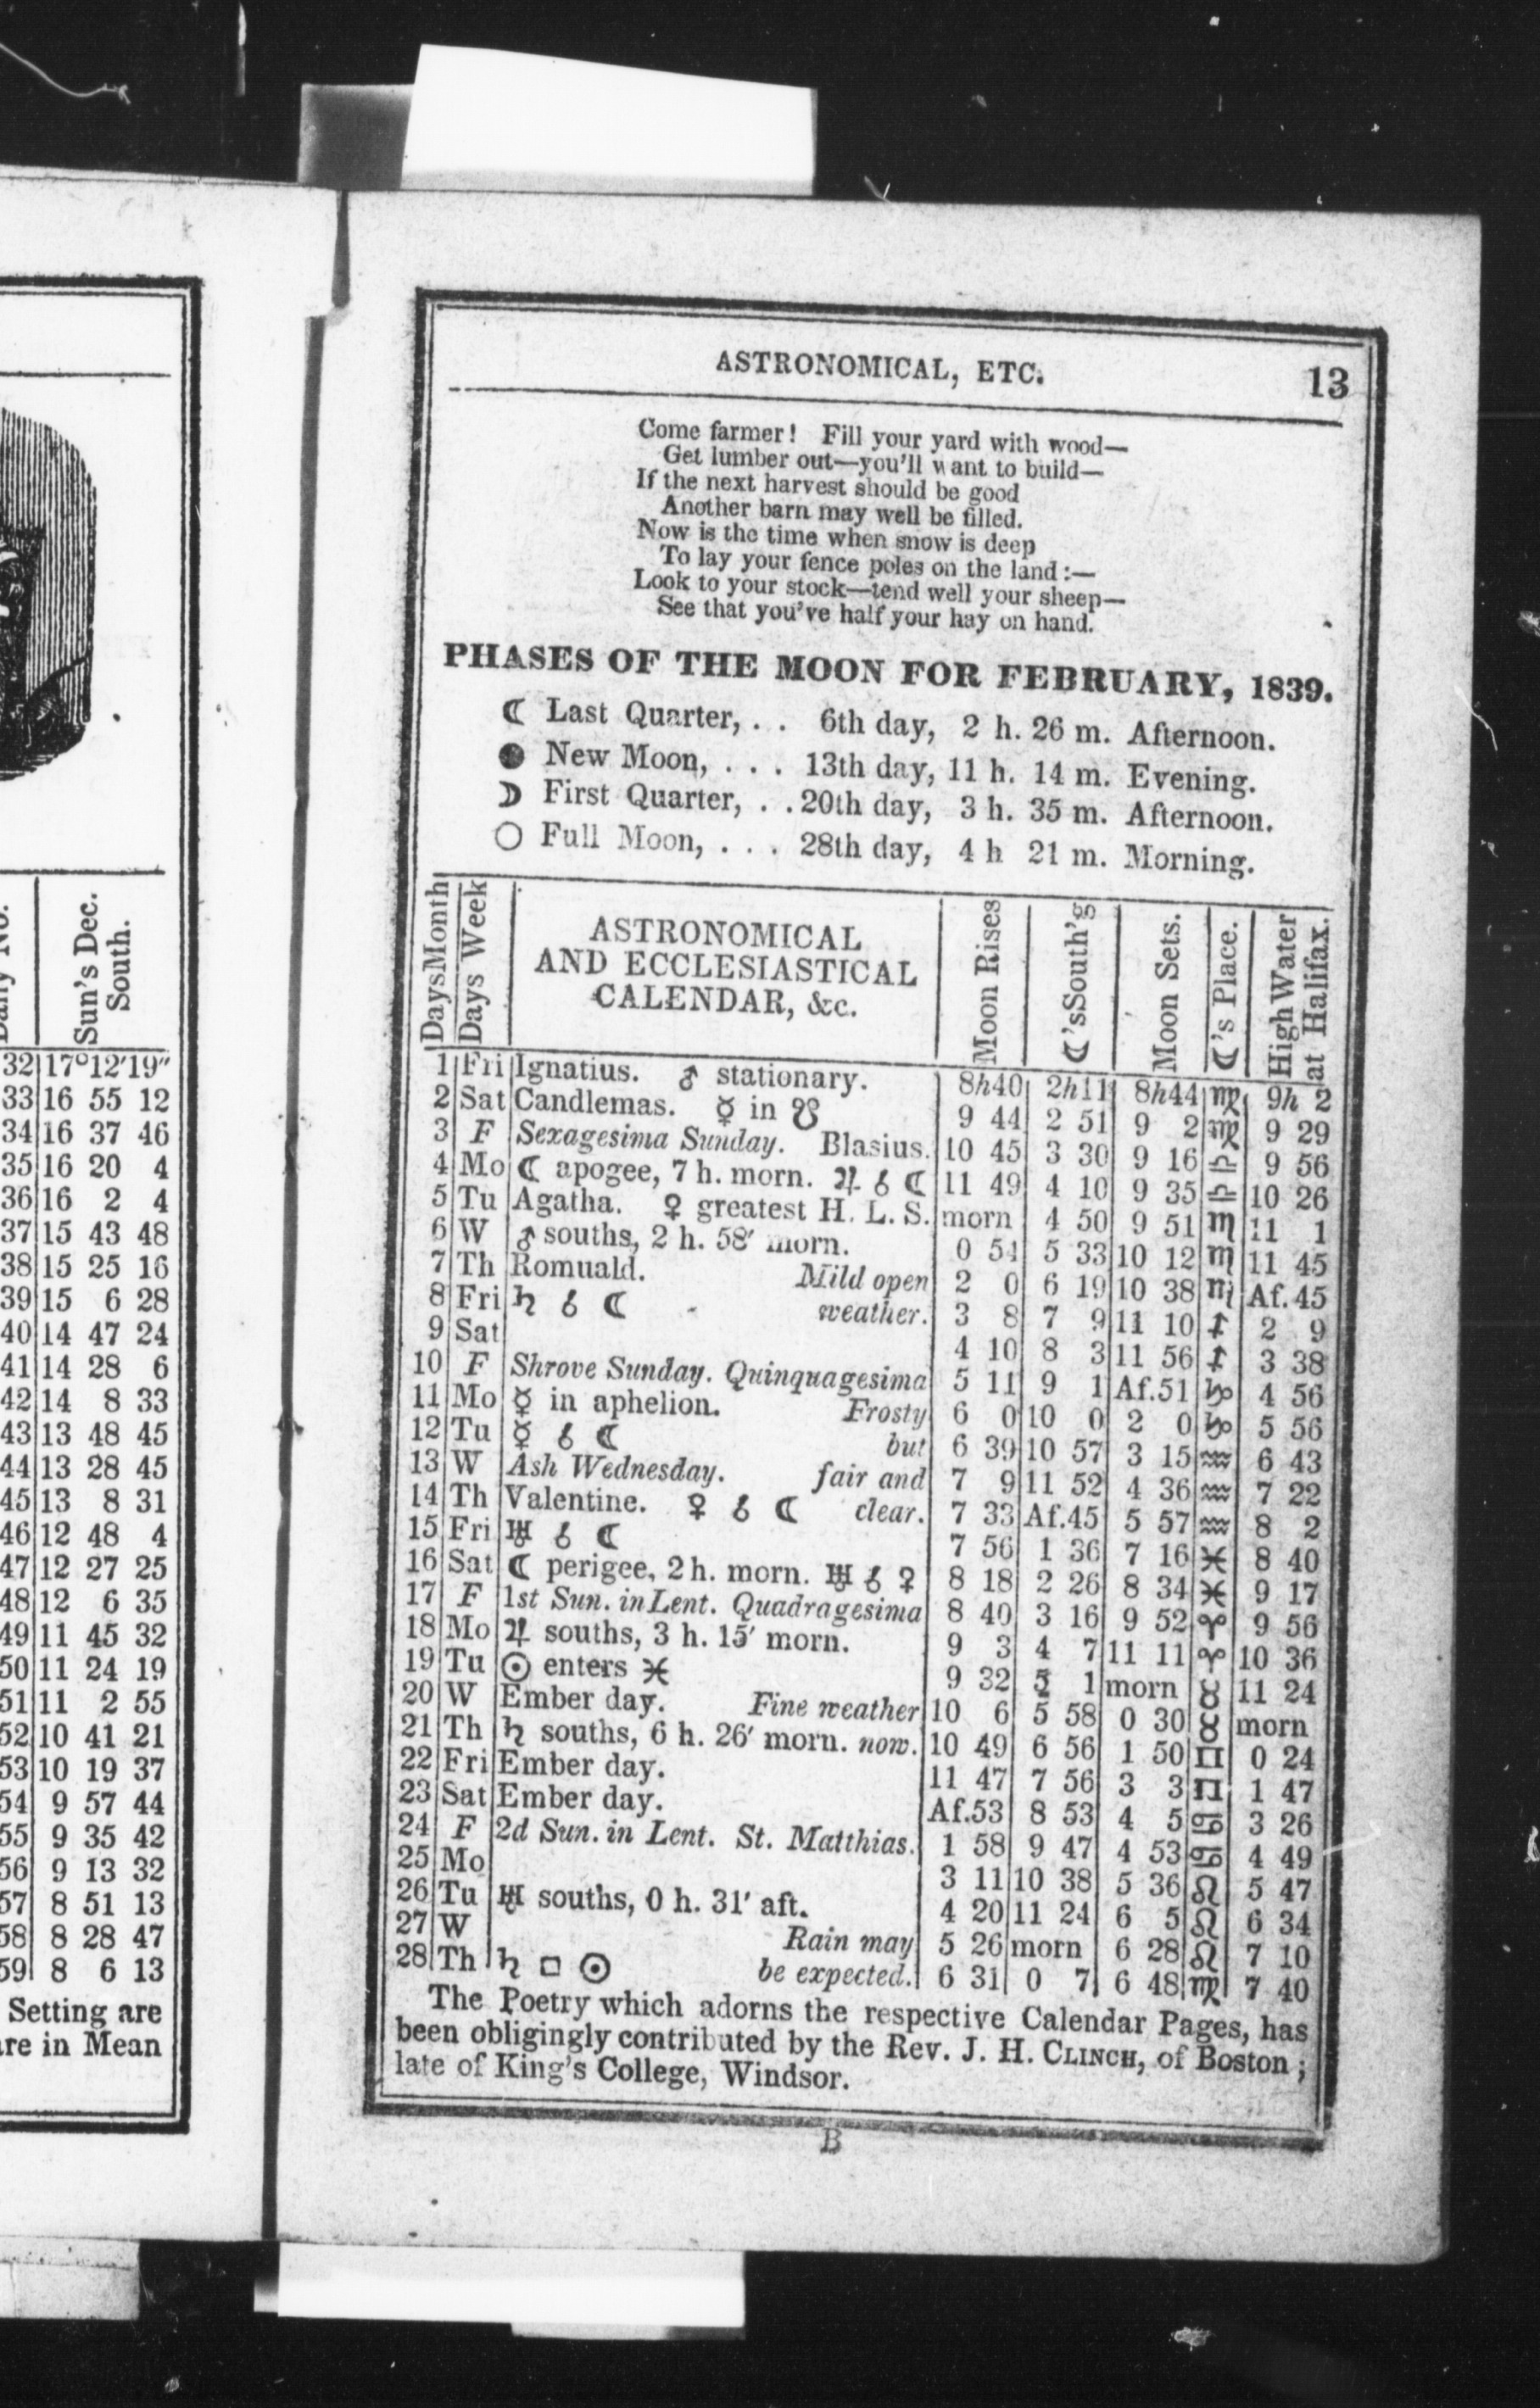 ASTRONOMICAL, ETC. 13
Come farmer! Fill your yard with wood—
Get lumber out—you'll want to build—
If the next harvest should be good
Another barn may well be filled.
Now is the time when snow is deep
To lay your fence poles on the land:—
Look to your stock—tend well your sheep—
See that you've half your hay on hand.
PHASES OF THE MOON FOR FEBRUARY, 1839.
☾ Last Quarter, . . 6th day, 2 h. 26 m. Afternoon.
● New Moon, . . . 13th day, 11 h. 14 m. Evening.
☽ First Quarter, . . 20th day, 3 h. 35 m. Afternoon.
○ Full Moon, . . . 28th day, 4 h 21 m. Morning.
Days Month
Days Week
ASTRONOMICAL
AND ECCLESIASTICAL
CALENDAR, &c.
Moon Rises
☾'s South'g
Moon Sets.
☾'s Place.
High Water
at Halifax.
1 Fri Ignatius. ♂ stationary. 8h40 2h11 8h44 ♍ 9h 2
2 Sat Candlemas. ☿ in ☋ 9 44 2 51 9 2 ♍ 9 29
3 F Sexagesima Sunday. Blasius. 10 45 3 30 9 16 ♎ 9 56
4 Mo ☾ apogee, 7 h. morn. ♃ ☌ ☾ 11 49 4 10 9 35 ♎ 10 26
5 Tu Agatha. ♀ greatest H. L. S. morn 4 50 9 51 ♏ 11 1
6 W ♂ souths, 2 h. 58' morn. 0 54 5 33 10 12 ♏ 11 45
7 Th Romuald. Mild open 2 0 6 19 10 38 ♏ Af.45
8 Fri ♄ ☌ ☾ weather. 3 8 7 9 11 10 ♐ 2 9
9 Sat 4 10 8 3 11 56 ♐ 3 38
10 F Shrove Sunday. Quinquagesima 5 11 9 1 Af.51 ♑ 4 56
11 Mo ☿ in aphelion. Frosty 6 0 10 0 2 0 ♑ 5 56
12 Tu ☿ ☌ ☾ but 6 39 10 57 3 15 ♒ 6 43
13 W Ash Wednesday. fair and 7 9 11 52 4 36 ♒ 7 22
14 Th Valentine. ♀ ☌ ☾ clear. 7 33 Af.45 5 57 ♒ 8 2
15 Fri ♅ ☌ ☾ 7 56 1 36 7 16 ♓ 8 40
16 Sat ☾ perigee, 2 h. morn. ♅ ☌ ♀ 8 18 2 26 8 34 ♓ 9 17
17 F 1st Sun. in Lent. Quadragesima 8 40 3 16 9 52 ♈ 9 56
18 Mo ♃ souths, 3 h. 15' morn. 9 3 4 7 11 11 ♈ 10 36
19 Tu ☉ enters ♓ 9 32 5 1 morn ♉ 11 24
20 W Ember day. Fine weather 10 6 5 58 0 30 ♉ morn
21 Th ♄ souths, 6 h. 26' morn. now. 10 49 6 56 1 50 ♊ 0 24
22 Fri Ember day. 11 47 7 56 3 3 ♊ 1 47
23 Sat Ember day. Af.53 8 53 4 5 ♋ 3 26
24 F 2d Sun. in Lent. St. Matthias. 1 58 9 47 4 53 ♋ 4 49
25 Mo 3 11 10 38 5 36 ♌ 5 47
26 Tu ♅ souths, 0 h. 31' aft. 4 20 11 24 6 5 ♌ 6 34
27 W Rain may 5 26 morn 6 28 ♌ 7 10
28 Th ♄ □ ☉ be expected. 6 31 0 7 6 48 ♍ 7 40
The Poetry which adorns the respective Calendar Pages, has
been obligingly contributed by the Rev. J. H. CLINCH, of Boston;
late of King's College, Windsor.
B
Sun's Dec.
South.
32 17°12'19"
33 16 55 12
34 16 37 46
35 16 20 4
36 16 2 4
37 15 43 48
38 15 25 16
39 15 6 28
40 14 47 24
41 14 28 6
42 14 8 33
43 13 48 45
44 13 28 45
45 13 8 31
46 12 48 4
47 12 27 25
48 12 6 35
49 11 45 32
50 11 24 19
51 11 2 55
52 10 41 21
53 10 19 37
54 9 57 44
55 9 35 42
56 9 13 32
57 8 51 13
58 8 28 47
59 8 6 13
Setting are
are in Mean